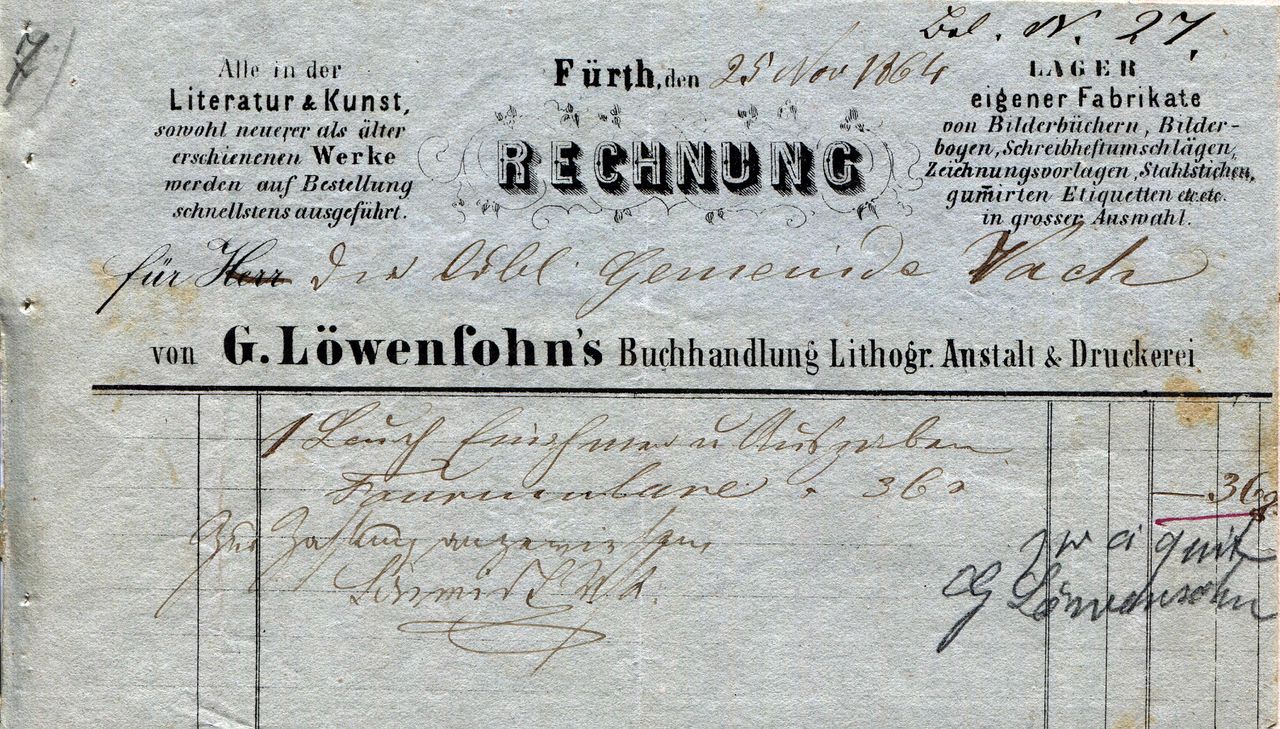 7)
Bel. N. 27.
Alle in der
Literatur & Kunst,
sowohl neuerer als älter
erschienenen Werke
werden auf Bestellung
schnellstens ausgeführt.
Fürth, den 25 Nov 1864
RECHNUNG
LAGER
eigener Fabrikate
von Bilderbüchern, Bilder-
bogen, Schreibheftumschlägen,
Zeichnungsvorlagen, Stahlstichen,
gum̄irten Etiquetten etc. etc.
in grosser Auswahl.
für Herr Die löbl. Gemeinde Vach
von G. Löwenſohn's Buchhandlung Lithogr. Anstalt & Druckerei
1 Buch Einahmen u Ausgaben
Fourmulare 36x
— 36x
Zur Zahlung angewiesen
quit
G Löwensohn